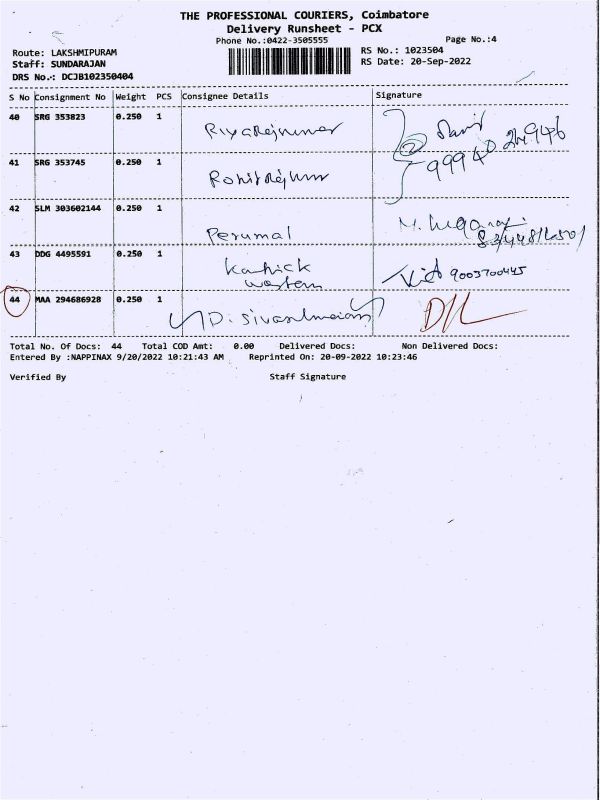 THE PROFESSIONAL COURIERS, Coimbatore
Delivery Runsheet - PCX
Phone No.:0422-3505555
Page No.:4
Route: LAKSHMIPURAM
RS No.: 1023504
Staff: SUNDARAJAN
RS Date: 20-Sep-2022
DRS No.: DCJB102350404
S No Consignment No Weight PCS Consignee Details Signature
40 SRG 353823 0.250 1
41 SRG 353745 0.250 1
42 SLM 303602144 0.250 1 Perumal
43 DDG 4495591 0.250 1 9003700445
44 MAA 294686928 0.250 1
Total No. Of Docs: 44 Total COD Amt: 0.00 Delivered Docs: Non Delivered Docs:
Entered By :NAPPINAX 9/20/2022 10:21:43 AM Reprinted On: 20-09-2022 10:23:46
Verified By Staff Signature